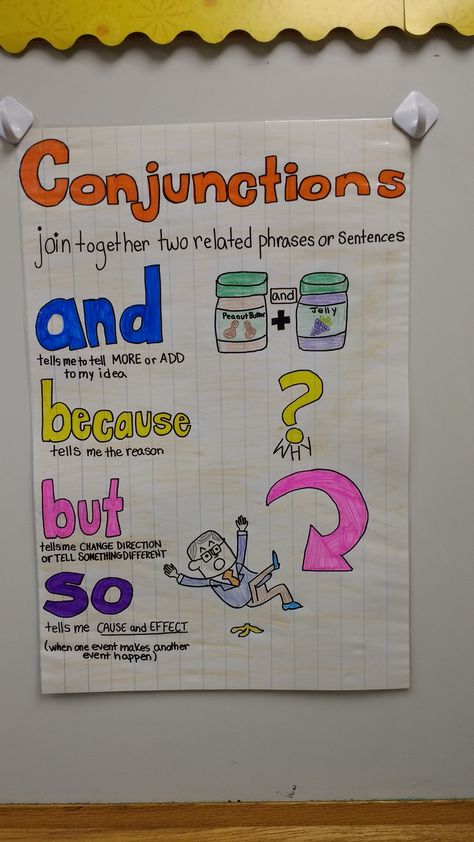 Conjunctions
join together two related phrases or sentences
and
tells me to tell MORE or ADD
to my idea
Peanut Butter
and
+
Jelly
because
tells me the reason
?
WHY
but
tells me CHANGE DIRECTION
or TELL SOMETHING DIFFERENT
so
tells me CAUSE and EFFECT
(when one event makes another
event happen)